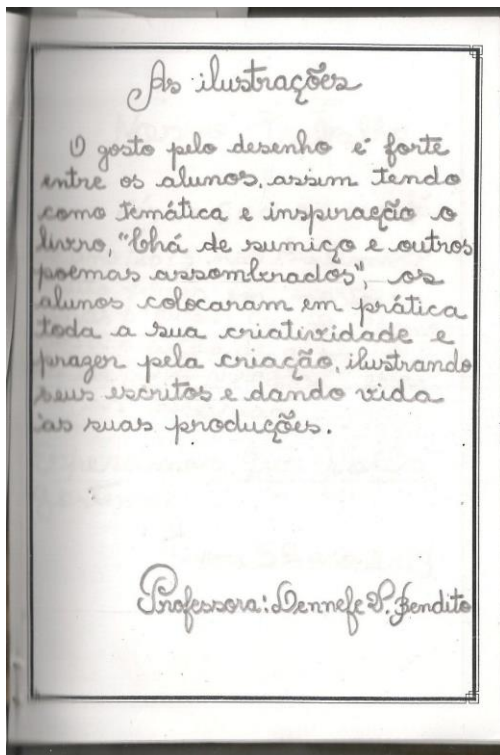 As ilustrações
O gosto pelo desenho é forte
entre os alunos, assim tendo
como temática e inspiração o
livro, "Chá de sumiço e outros
poemas assombrados", os
alunos colocaram em prática
toda a sua criatividade e
prazer pela criação, ilustrando
seus escritos e dando vida
às suas produções.
Professora: P. Bendito